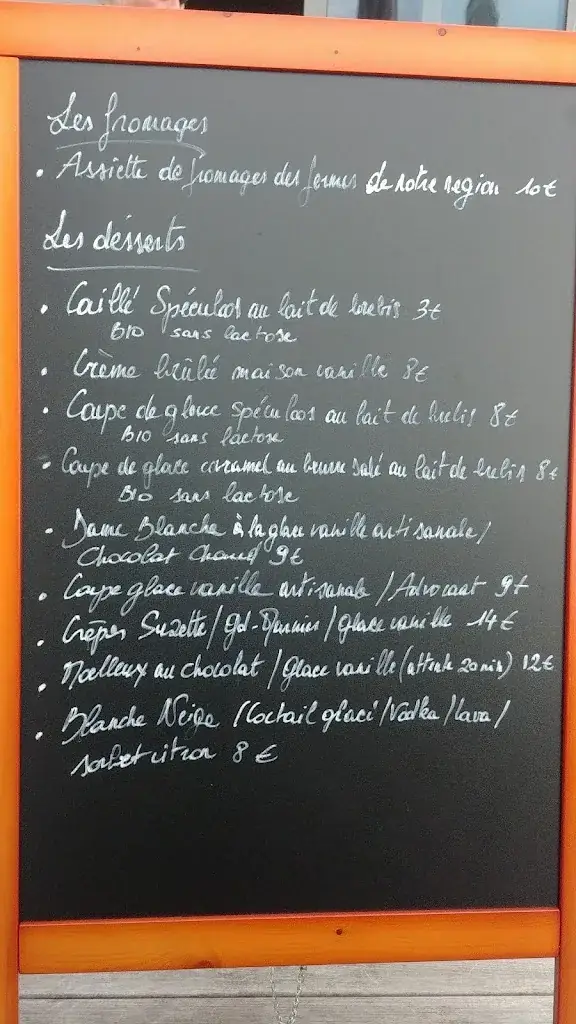 Les fromages
• Assiette de fromages des fermes de notre region 10€
Les desserts
• Caillé Spéculoos au lait de brebis 3€
BIO sans lactose
• Crème brûlée maison vanille 8€
• Coupe de glace spéculoos au lait de brebis 8€
BIO sans lactose
• Coupe de glace caramel au beurre salé au lait de brebis 8€
Bio sans lactose
• Dame Blanche à la glace vanille artisanale/
Chocolat Chaud 9€
• Coupe glace vanille artisanale / Advocaat 9€
• Crêpes Suzette/gd-Marnier/glace vanille 14€
• Moelleux au chocolat / glace vanille (attente 20 min) 12€
• Blanche Neige / Coctail glacé / Vodka / Cava /
sorbet citron 8 €